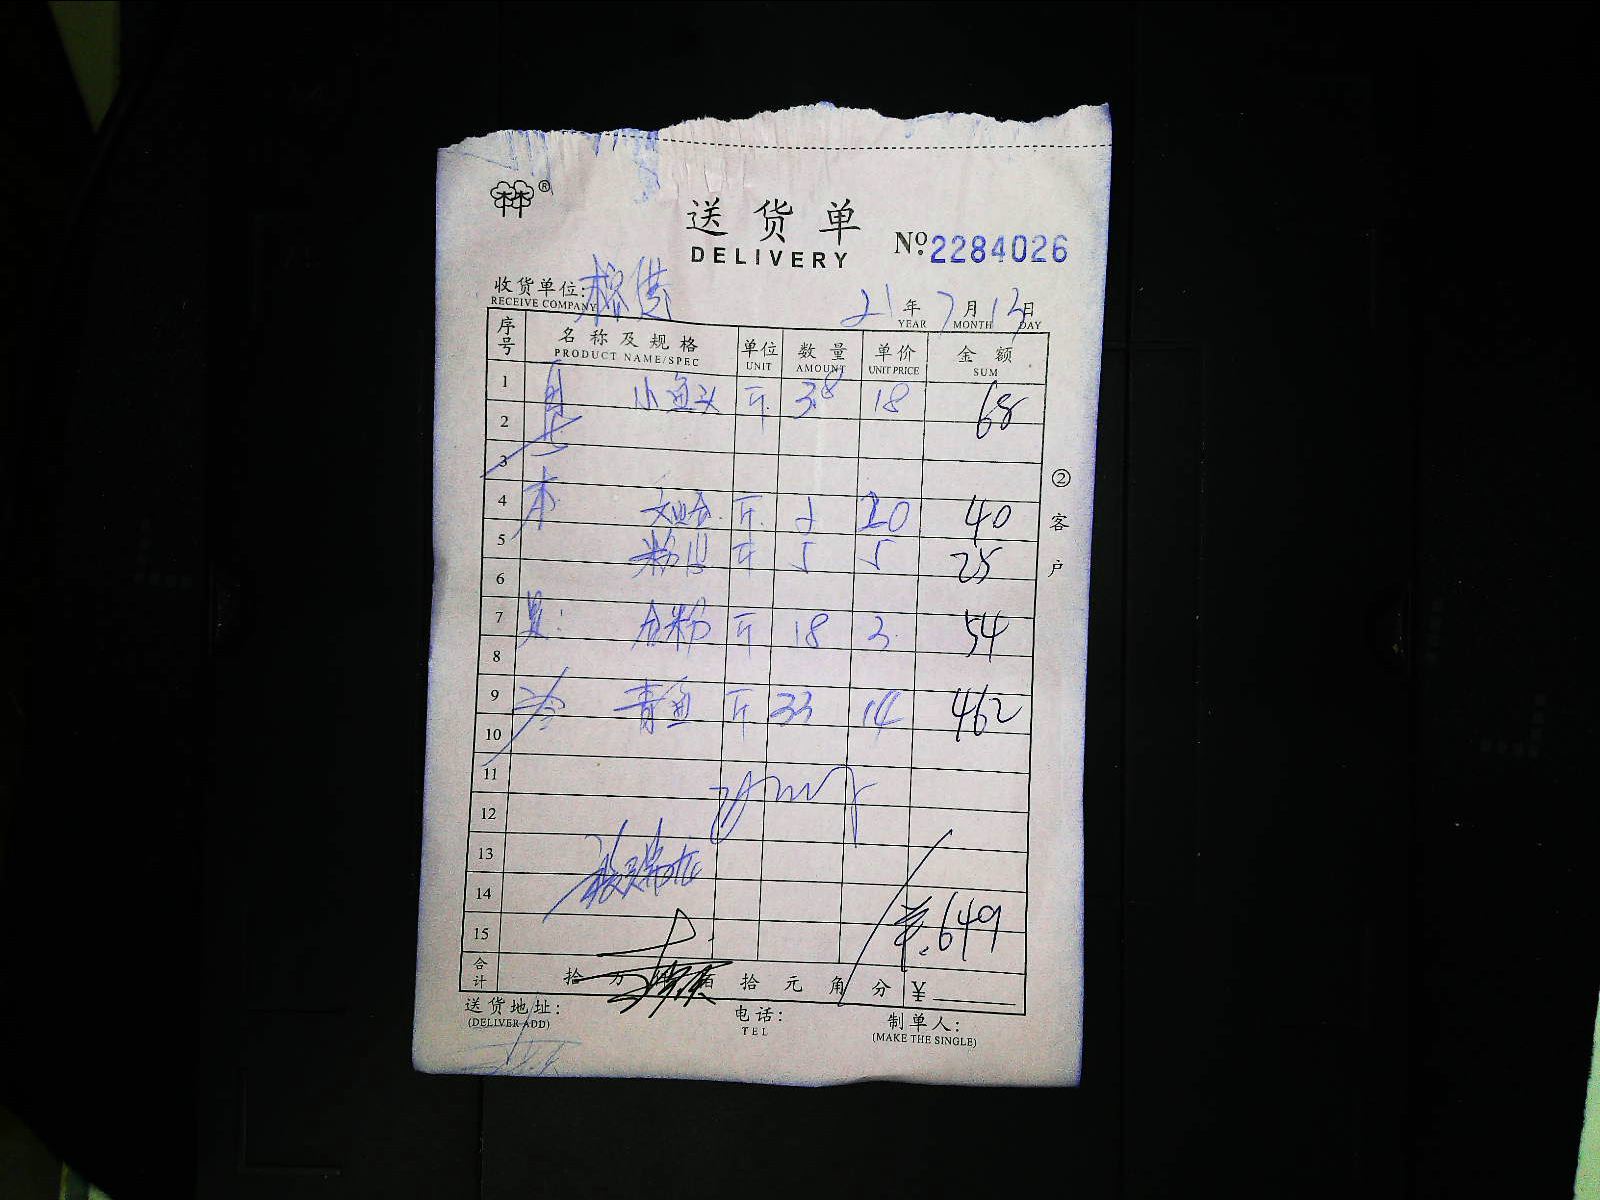 ®
送货单
DELIVERY
No.2284026
收货单位:
RECEIVE COMPANY
21年7月13日
YEAR MONTH DAY
序号 名称及规格 单位 数量 单价 金额
PRODUCT NAME/SPEC UNIT AMOUNT UNIT PRICE SUM
1 小鱼头 斤 3.8 18 68
2
3
4 本 斤 2 20 40
5 斤 5 5 25
6
7 斤 18 3 54
8
9 冷 青鱼 斤 33 14 462
10
11
12
13
14
¥.649
15
合计 拾万仟佰拾元角分 ¥
送货地址:
(DELIVER ADD)
电话:
TEL
制单人:
(MAKE THE SINGLE)
②客户